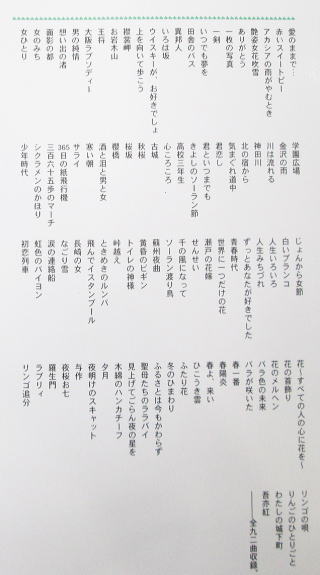 愛のままで…
赤いスイートピー
アカシアの雨がやむとき
艶姿女花吹雪
ありがとう
一枚の写真
一剣
いつでも夢を
田舎のバス
異邦人
いろは坂
ウイスキーが、お好きでしょ
上を向いて歩こう
襟裳岬
お岩木山
王将
大阪ラプソディー
男の純情
想い出の渚
面影の都
女のみち
女ひとり
学園広場
金沢の雨
川は流れる
神田川
北の宿から
気まぐれ道中
君恋し
君といつまでも
きよしのソーラン節
高校三年生
こころころ
古城
秋桜
桜坂
櫻橋
酒と泪と男と女
寒い朝
サライ
365日の紙飛行機
三百六十五歩のマーチ
シクラメンのかほり
少年時代
じょんから女節
白いブランコ
人生いろいろ
人生みちづれ
ずっとあなたが好きでした
青春時代
世界に一つだけの花
瀬戸の花嫁
せんせい
千の風になって
ソーラン渡り鳥
蘇州夜曲
黄昏のビギン
トイレの神様
峠越え
ときめきのルンバ
飛んでイスタンブール
長崎の女
なごり雪
涙の連絡船
虹色のバイヨン
初恋列車
花～すべての人の心に花を～
花の首飾り
花のメルヘン
バラ色の未来
バラが咲いた
春一番
春陽炎
春よ、来い
ひこうき雲
ふたり花
冬のひまわり
ふるさとは今もかわらず
聖母たちのララバイ
見上げてごらん夜の星を
木綿のハンカチーフ
夕月
夜明けのスキャット
与作
夜桜お七
羅生門
ラブリィ
リンゴ追分
リンゴの唄
りんごのひとりごと
わたしの城下町
吾亦紅
――全九二曲収録。